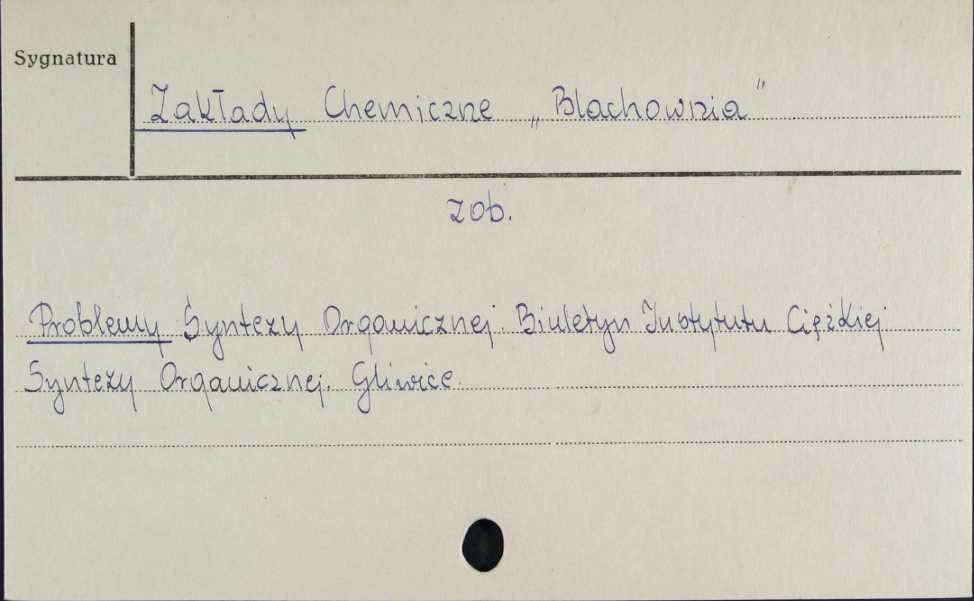 Sygnatura
Zakłady Chemiczne „Blachownia"
zob.
Problemy Syntezy Organicznej. Biuletyn Instytutu Ciężkiej
Syntezy Organicznej. Gliwice.